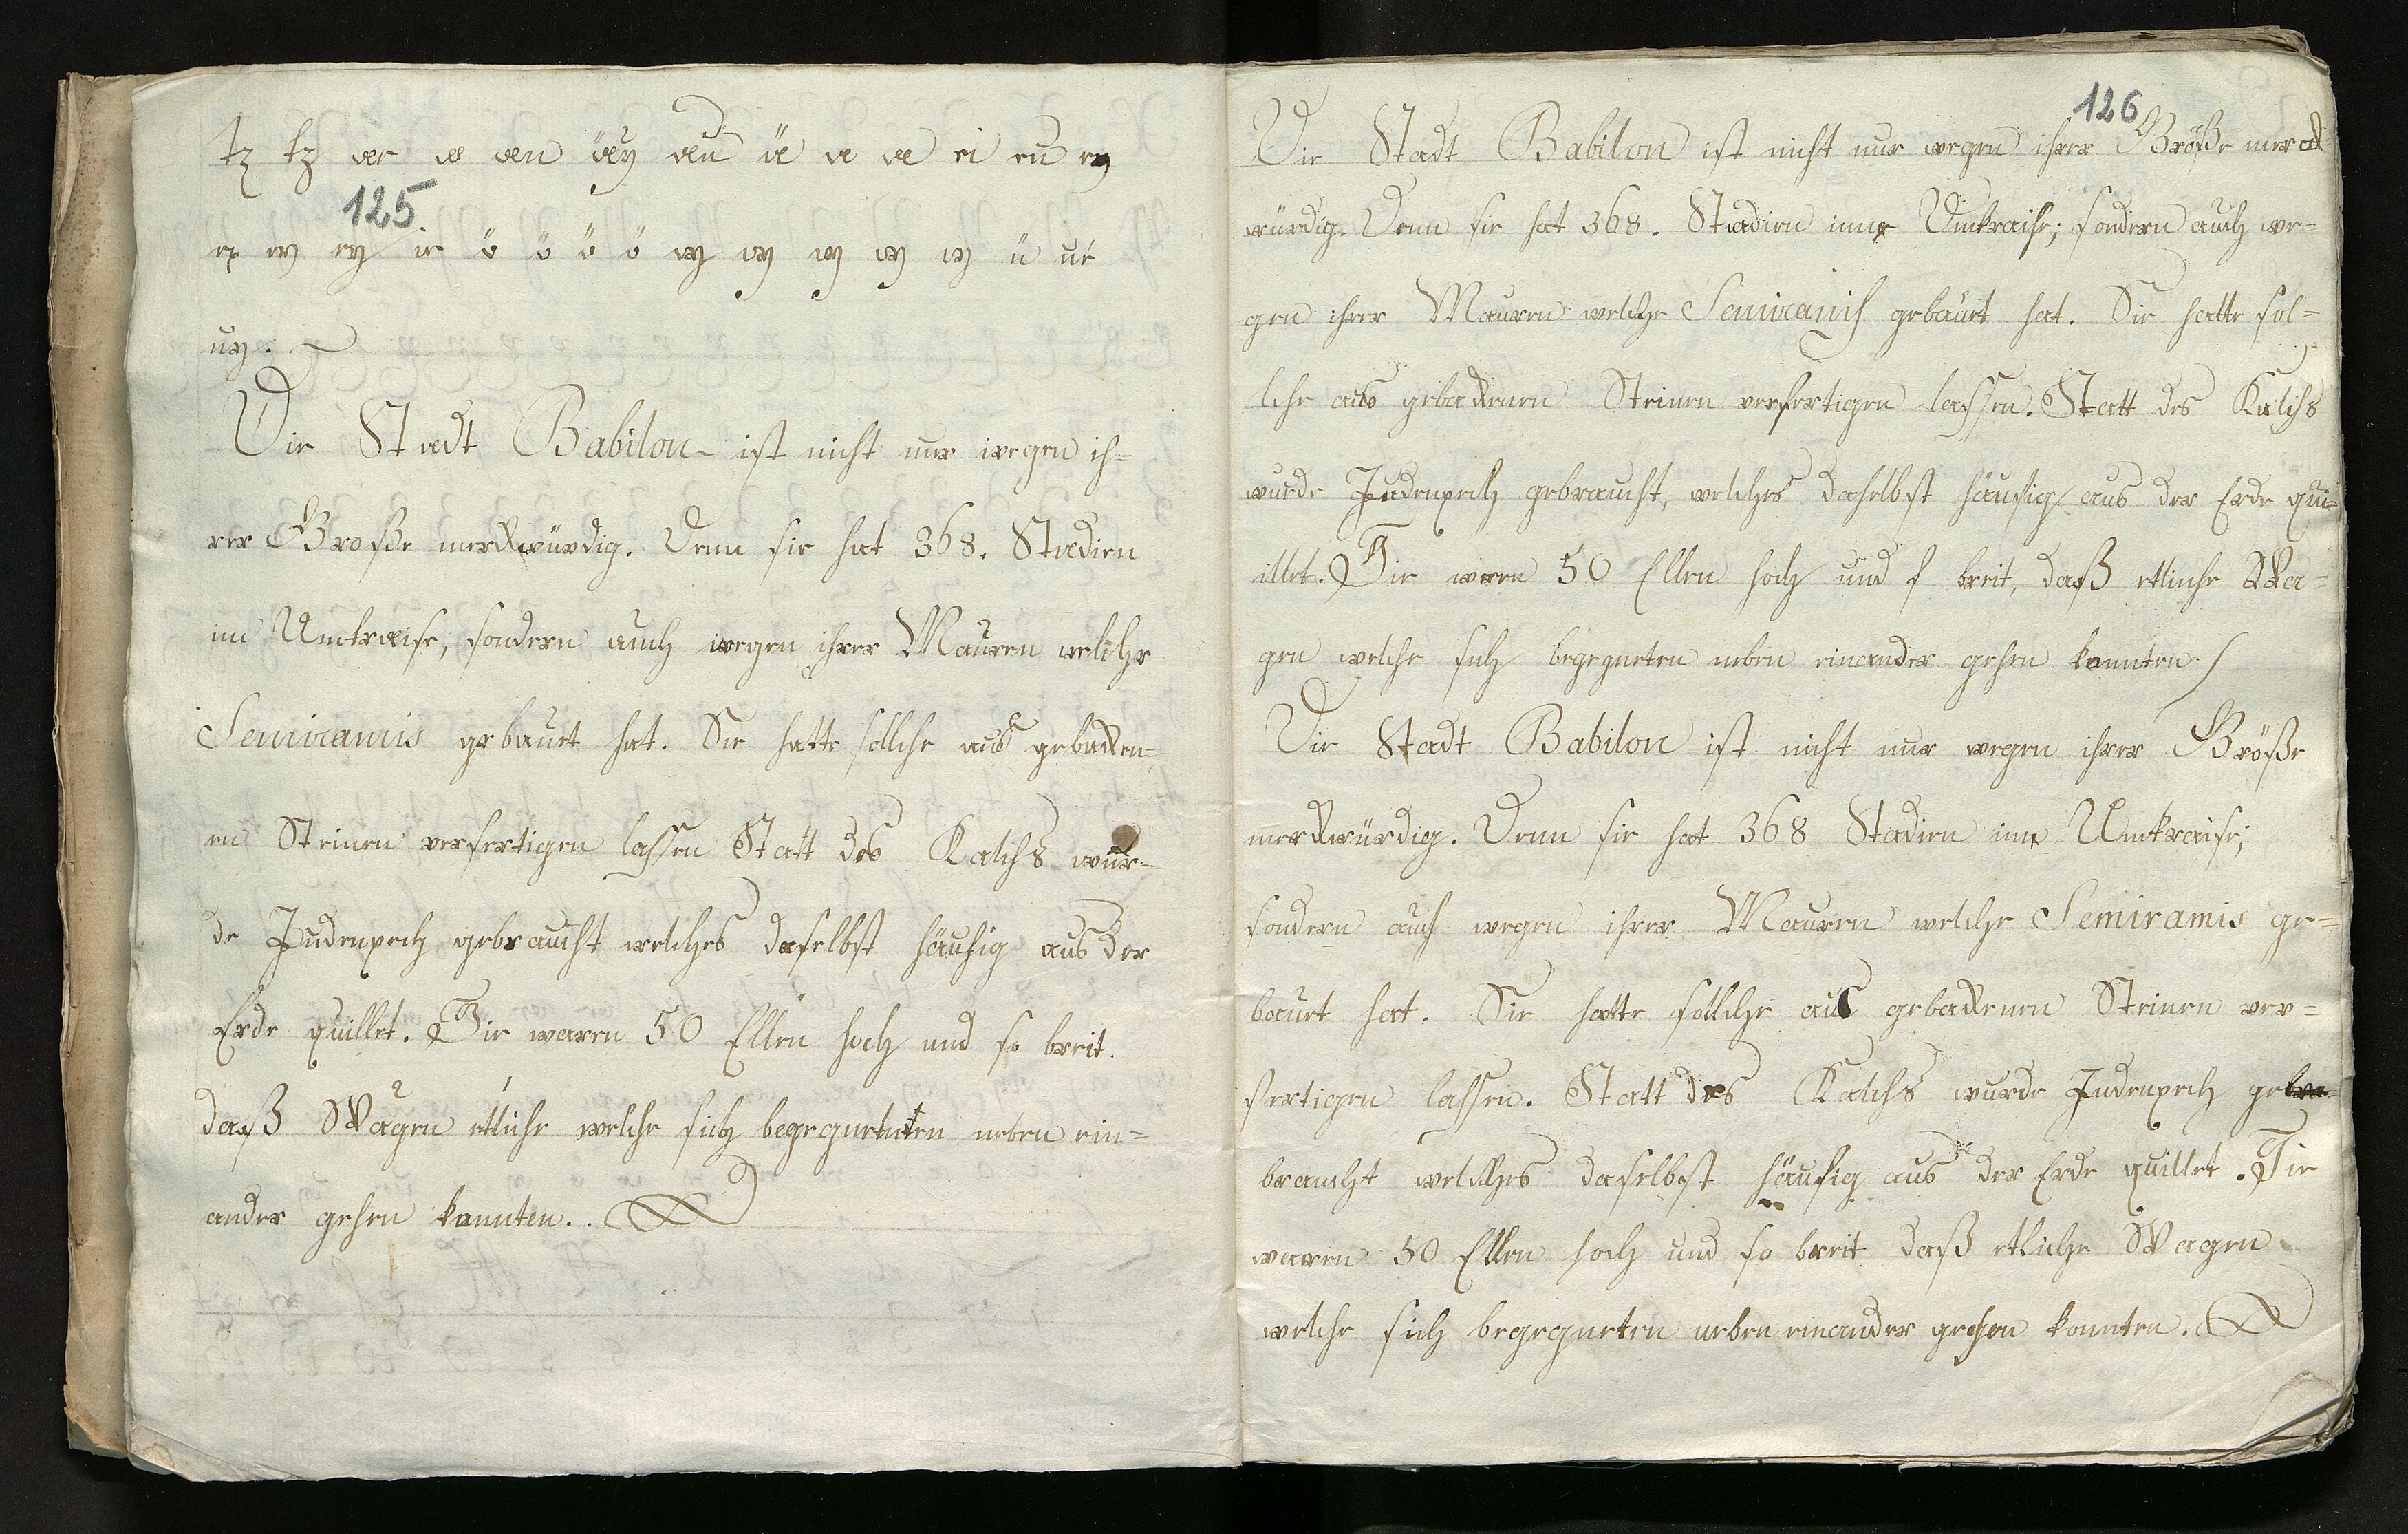 tz tz ae ae aen äy aeu ä a ae ei eu ey
125
ex ey ey ie ö ö ö ö oy oy oy oy oy ü üe
uy.
Die Stadt Babilon ist nicht nur wegen ih=
rer Große merkwürdig. Denn sie hat 368. Stadien
im Umkraise, sondern auch wegen ihrer Mauren welche
Semiramis gebauet hat. Sie hatte sollche aus gebacken=
en Steinen verfertigen lassen Statt des Kalchs wur=
de Judenpech gebraucht welches daselbst häufig aus der
Erde quillet. Sie waren 50 Ellen hoch und so breit.
daß Wagen etliche welche sich begegneten neben ein=
ander gehen konnten..
126
Die Stadt Babilon ist nicht nur wegen ihrer Größe merck
würdig. Denn sie hat 368. Stadien imme Umkraise; sondern auch we=
gen ihrer Mauren welche Semiramis gebauet hat. Sie hatte sol=
lche aus gebackenen Steinen verfertigen lassen. Statt des Kalchs
wurde Judenpech gebraucht, welches daselbst häufig aus der Erde qui=
illet. Sie waren 50 Ellen hoch und s breit, daß etliche Wa=
gen welche sich begegneten neben einander gehen konnten
Die Stadt Babilon ist nicht nur wegen ihrer Größe
merckwürdig. Denn sie hat 368 Stadien im Umkraise;
sondern auch wegen ihrer Mauren welche Semiramis ge=
bauet hat. Sie hatte sollche aus gebackenen Steinen ver=
fertigen lassen. Statt des Kalchs wurde Judenpech gebra=
braucht welches daselbst häufig aus der Erde quillet. Sie
waren 50 Ellen hoch und so breit daß etliche Wagen
welche sich begegneten neben einander gehen konnten.